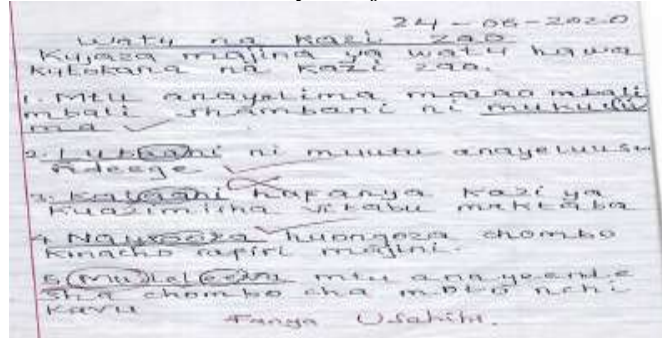 24-06-2020
Watu na kazi zao
Kujaza majina ya watu hawa
kutokana na kazi zao.
1. Mtu anayelima mazao mbali
mbali shambani ni mukuli
ma
ni muutu anayeluusu
ndeege
hufanya kazi ya
kuazimisha vitabu maktaba
4. huongoza chombo
kinacho safiri majini.
5. mtu anayeende
sha chombo cha moto nchi
kavu
Fanya Usahihi.